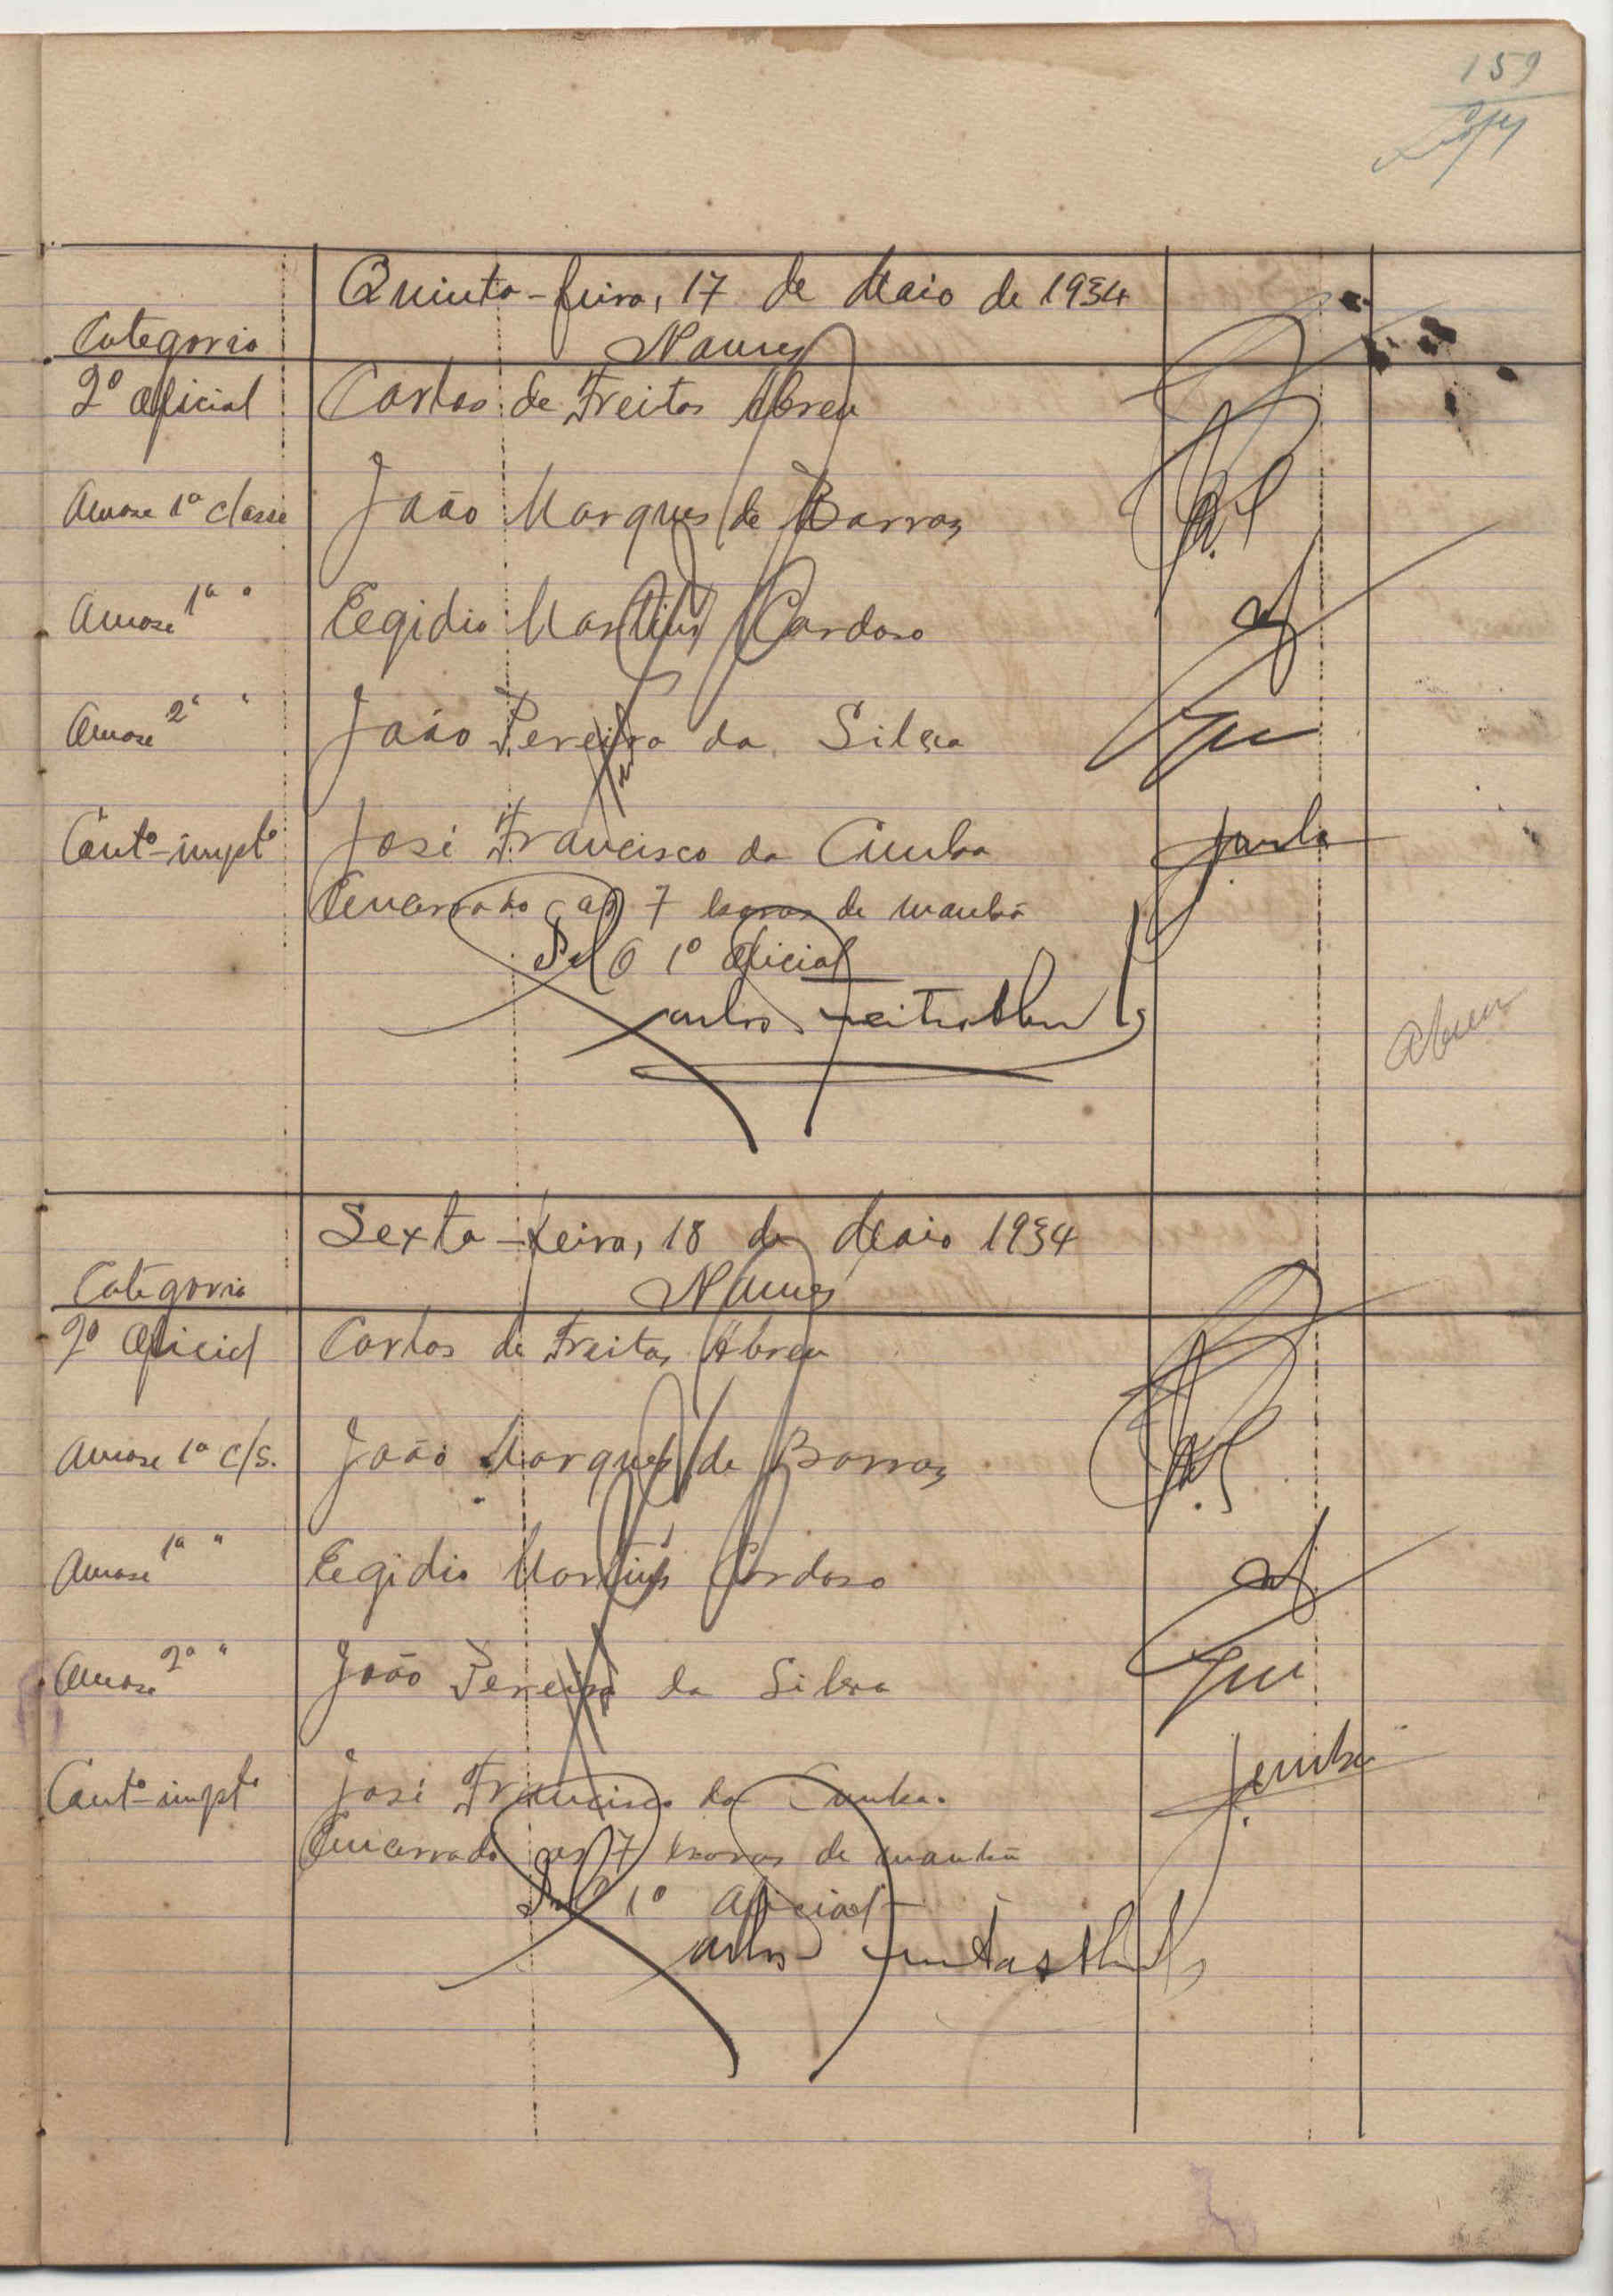 159
Quinta-feira, 17 de Maio de 1934
Categoria Nomes
2º Oficial Carlos de Freitas Abreu
1ª classe João Marques de Barros
1ª " Egidio Martins Cardoso
2ª " João Pereira da Silva
José Francisco da Cunha
Encerrado as 7 horas da manhã
Pel O 1º Oficial
Carlos Freitas Abreu
Abreu
Sexta-feira, 18 de Maio 1934
Categoria Nomes
2º Oficial Carlos de Freitas Abreu
1ª cls. João Marques de Barros
1ª " Egidio Martins Cardoso
2ª " João Pereira da Silva
José Francisco da Cunha.
Encerrado as 7 horas da manhã
Pel O 1º Oficial
Carlos Freitas Abreu